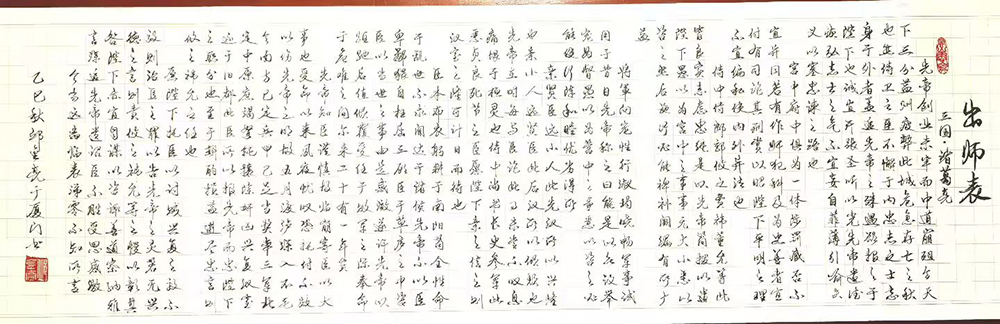 出师表
三国·诸葛亮
先帝创业未半而中道崩殂今天
下三分益州疲弊此诚危急存亡之秋
也然侍卫之臣不懈于内忠志之士忘
身于外者盖追先帝之殊遇欲报之于
陛下也诚宜开张圣听以光先帝遗德
恢弘志士之气不宜妄自菲薄引喻失
义以塞忠谏之路也
宫中府中俱为一体陟罚臧否不
宜异同若有作奸犯科及为忠善者宜
付有司论其刑赏以昭陛下平明之理
不宜偏私使内外异法也
侍中侍郎郭攸之费祎董允等此
皆良实志虑忠纯是以先帝简拔以遗
陛下愚以为宫中之事事无大小悉以
咨之然后施行必能裨补阙漏有所广
益
将军向宠性行淑均晓畅军事试
用于昔日先帝称之曰能是以众议举
宠为督愚以为营中之事悉以咨之必
能使行阵和睦优劣得所
亲贤臣远小人此先汉所以兴隆
也亲小人远贤臣此后汉所以倾颓也
先帝在时每与臣论此事未尝不叹息
痛恨于桓灵也侍中尚书长史参军此
悉贞良死节之臣愿陛下亲之信之则
汉室之隆可计日而待也
臣本布衣躬耕于南阳苟全性命
于乱世不求闻达于诸侯先帝不以臣
卑鄙猥自枉屈三顾臣于草庐之中咨
臣以当世之事由是感激遂许先帝以
驱驰后值倾覆受任于败军之际奉命
于危难之间尔来二十有一年矣
先帝知臣谨慎故临崩寄臣以大
事也受命以来夙夜忧叹恐托付不效
以伤先帝之明故五月渡泸深入不毛
今南方已定兵甲已足当奖率三军北
定中原庶竭驽钝攘除奸凶兴复汉室
还于旧都此臣所以报先帝而忠陛下
之职分也至于斟酌损益进尽忠言则
攸之祎允之任也
愿陛下托臣以讨贼兴复之效不
效则治臣之罪以告先帝之灵若无兴
德之言则责攸之祎允等之慢以彰其
咎陛下亦宜自谋以咨诹善道察纳雅
言深追先帝遗诏臣不胜受恩感激
今当远离临表涕零不知所言
乙巳秋邹星亮于厦门书